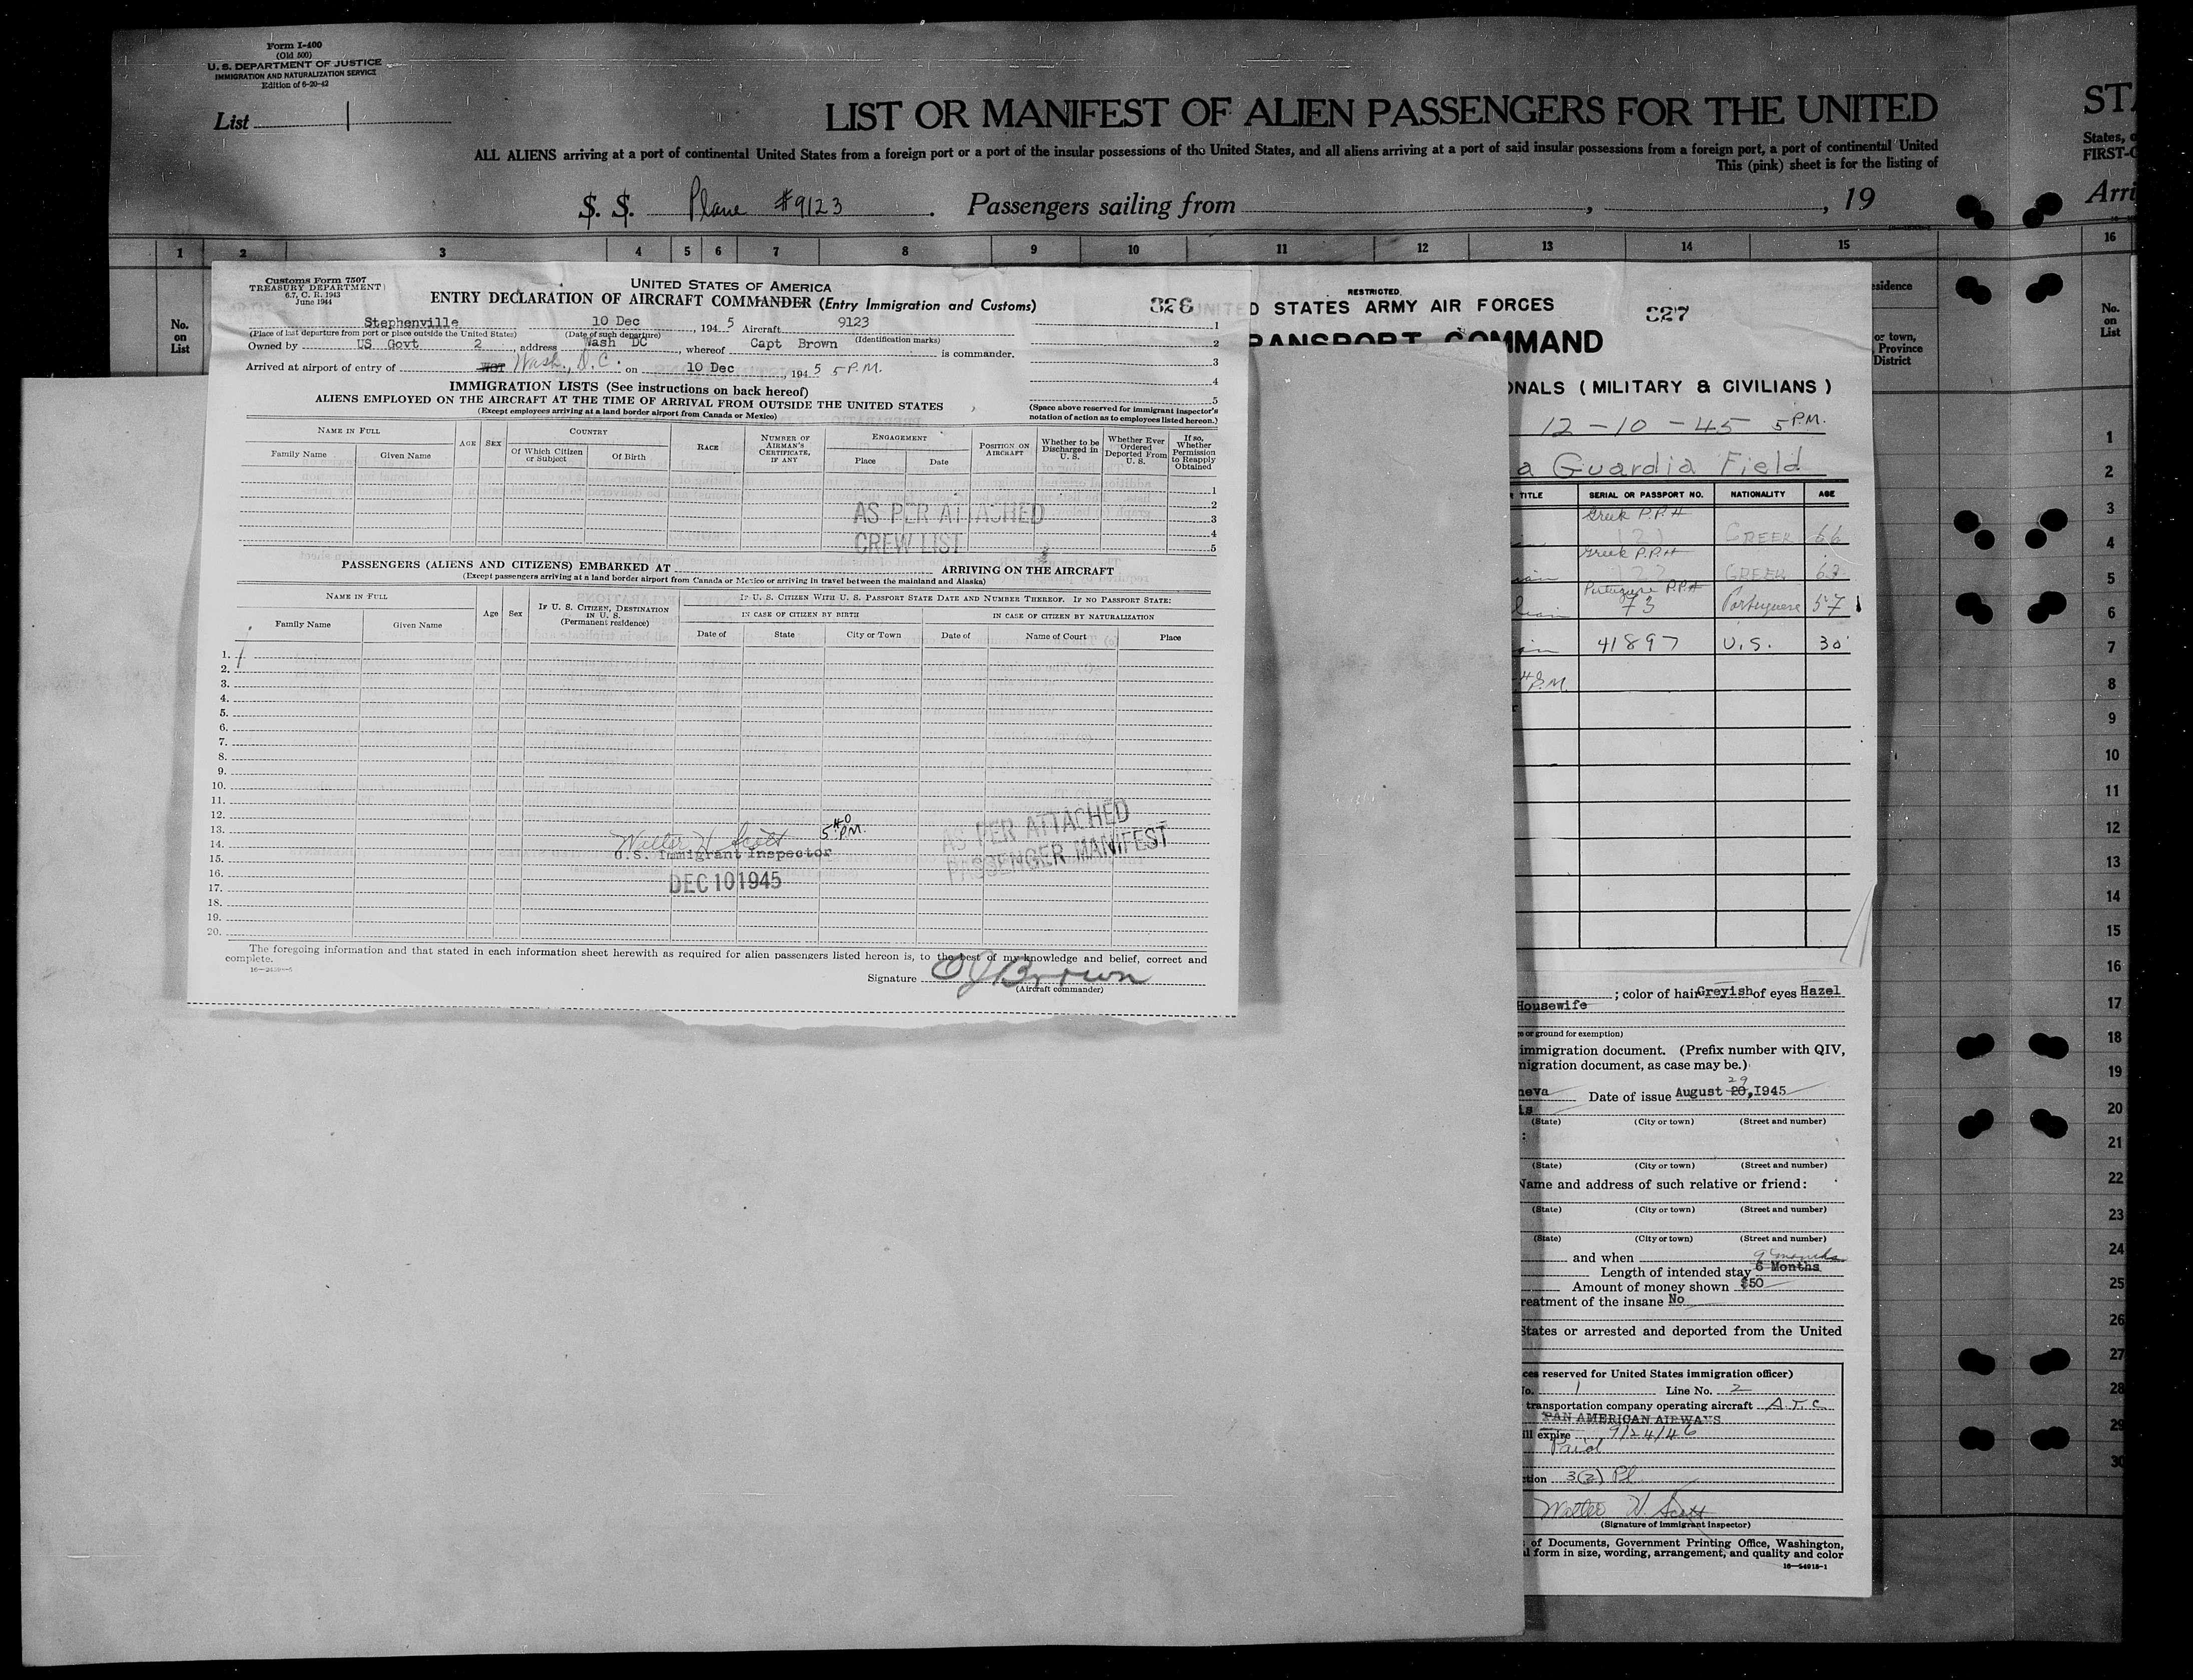 Form I-400
(Old 500)
U. S. DEPARTMENT OF JUSTICE
IMMIGRATION AND NATURALIZATION SERVICE
Edition of 6-20-42
List 1
LIST OR MANIFEST OF ALIEN PASSENGERS FOR THE UNITED
ALL ALIENS arriving at a port of continental United States from a foreign port or a port of the insular possessions of the United States, and all aliens arriving at a port of said insular possessions from a foreign port, a port of continental United
This (pink) sheet is for the listing of
S. S. Plane #9123. Passengers sailing from , , 19
1 2 3 4 5 6 7 8 9 10 11 12 13 14 15
No.
on
List
Customs Form 7507
TREASURY DEPARTMENT
6.7, C. R. 1943
June 1944
UNITED STATES OF AMERICA
ENTRY DECLARATION OF AIRCRAFT COMMANDER (Entry Immigration and Customs)
326
Stephenville 10 Dec , 194 5 Aircraft 9123
(Place of last departure from port or place outside the United States) (Date of such departure) (Identification marks)
Owned by US Govt 2 , address Wash DC , whereof Capt Brown is commander.
Arrived at airport of entry of Wash., D.C. on 10 Dec , 194 5 5 P.M.
1
2
3
4
5
IMMIGRATION LISTS (See instructions on back hereof)
ALIENS EMPLOYED ON THE AIRCRAFT AT THE TIME OF ARRIVAL FROM OUTSIDE THE UNITED STATES
(Except employees arriving at a land border airport from Canada or Mexico)
(Space above reserved for immigrant inspector's
notation of action as to employees listed hereon.)
NAME IN FULL
Family Name Given Name
AGE SEX
COUNTRY
Of Which Citizen
or Subject
Of Birth
RACE
NUMBER OF
AIRMAN'S
CERTIFICATE,
IF ANY
ENGAGEMENT
Place Date
POSITION ON
AIRCRAFT
Whether to be
Discharged in
U. S.
Whether Ever
Ordered
Deported From
U. S.
If so,
Whether
Permission
to Reapply
Obtained
1
2
3
4
5
AS PER ATTACHED
CREW LIST
PASSENGERS (ALIENS AND CITIZENS) EMBARKED AT ARRIVING ON THE AIRCRAFT
(Except passengers arriving at a land border airport from Canada or Mexico or arriving in travel between the mainland and Alaska)
NAME IN FULL
Family Name Given Name
Age Sex
IF U. S. CITIZEN, DESTINATION
IN U. S.
(Permanent residence)
IF U. S. CITIZEN WITH U. S. PASSPORT STATE DATE AND NUMBER THEREOF. IF NO PASSPORT STATE:
IN CASE OF CITIZEN BY BIRTH IN CASE OF CITIZEN BY NATURALIZATION
Date of State City or Town Date of Name of Court Place
1.
2.
3.
4.
5.
6.
7.
8.
9.
10.
11.
12.
13.
14.
15.
16.
17.
18.
19.
20.
Walter H Scott 5 40 P.M.
U.S. Immigrant Inspector
DEC 10 1945
AS PER ATTACHED
PASSENGER MANIFEST
The foregoing information and that stated in each information sheet herewith as required for alien passengers listed hereon is, to the best of my knowledge and belief, correct and
complete.
Signature OJ Brown
(Aircraft commander)
RESTRICTED
UNITED STATES ARMY AIR FORCES
327
RANSPORT COMMAND
ONALS ( MILITARY & CIVILIANS )
12-10-45 5 P.M.
a Guardia Field
TITLE SERIAL OR PASSPORT NO. NATIONALITY AGE
Greek P.P.#
121 GREEK 66
Greek P.P.#
122 GREEK 62
Portuguese P.P.#
73 Portuguese 57
41897 U.S. 30
P.M.
; color of hair Greyish of eyes Hazel
Housewife
or ground for exemption)
immigration document. (Prefix number with QIV,
migration document, as case may be.)
neva Date of issue August 20, 1945
29
(State) (City or town) (Street and number)
(State) (City or town) (Street and number)
Name and address of such relative or friend:
(State) (City or town) (Street and number)
(State) (City or town) (Street and number)
and when
9 months
Length of intended stay 6 Months
Amount of money shown $50
reatment of the insane No
States or arrested and deported from the United
ces reserved for United States immigration officer)
No. 1 Line No. 2
transportation company operating aircraft A.T.C
PAN AMERICAN AIRWAYS
ill expire 9/24/46
Paid
ction 3(2) Pl
Walter H. Scott
(Signature of Immigrant Inspector)
of Documents, Government Printing Office, Washington,
l form in size, wording, arrangement, and quality and color
esidence
or town,
Province
District
STA
States, o
FIRST-C
Arri
16
No.
on
List
1
2
3
4
5
6
7
8
9
10
11
12
13
14
15
16
17
18
19
20
21
22
23
24
25
26
27
28
29
30